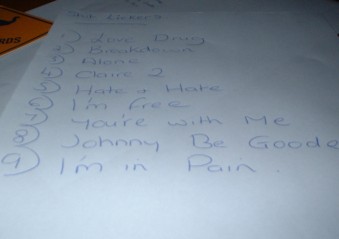 Shit Lickers
1) Love Dring
2) Breakdown
3) Alone
4) Claire 2
5) Hate + Hate
6) I'm Free
7) You're with Me
8) Johnny Be Goode
9) I'm in Pain.